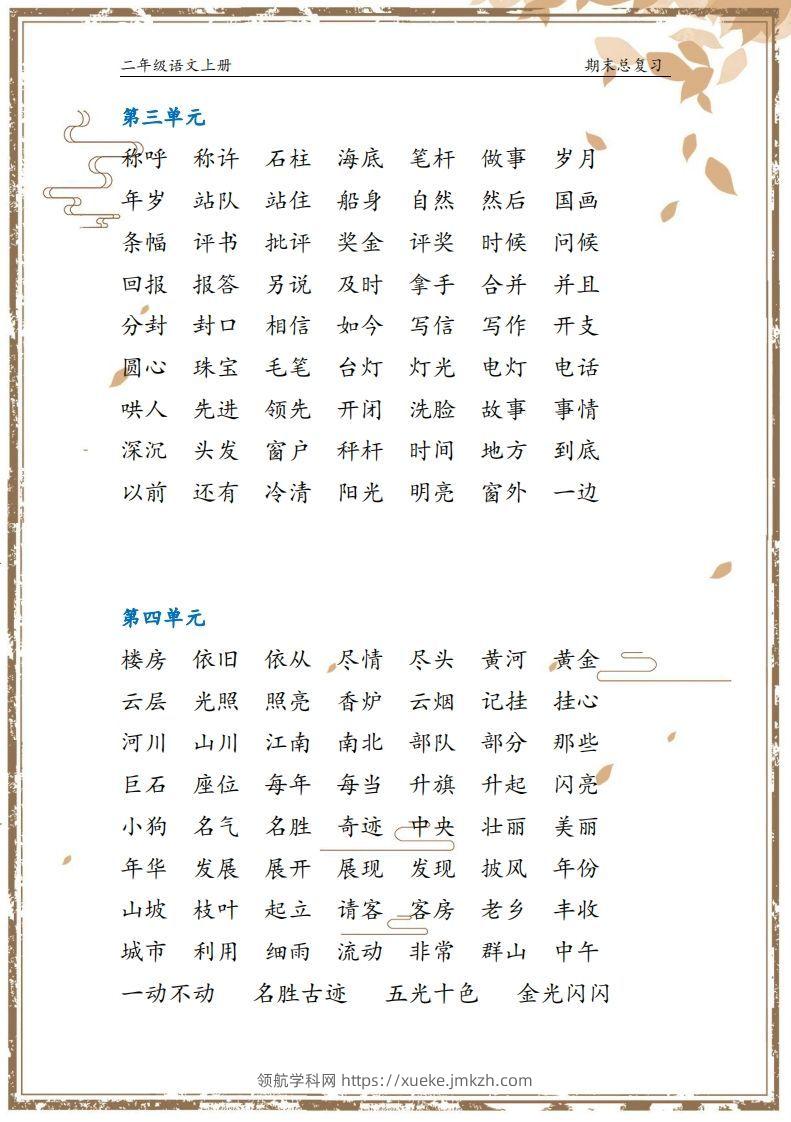 二年级语文上册 期末总复习
第三单元
称呼 称许 石柱 海底 笔杆 做事 岁月
年岁 站队 站住 船身 自然 然后 国画
条幅 评书 批评 奖金 评奖 时候 问候
回报 报答 另说 及时 拿手 合并 并且
分封 封口 相信 如今 写信 写作 开支
圆心 珠宝 毛笔 台灯 灯光 电灯 电话
哄人 先进 领先 开闭 洗脸 故事 事情
深沉 头发 窗户 秤杆 时间 地方 到底
以前 还有 冷清 阳光 明亮 窗外 一边
第四单元
楼房 依旧 依从 尽情 尽头 黄河 黄金
云层 光照 照亮 香炉 云烟 记挂 挂心
河川 山川 江南 南北 部队 部分 那些
巨石 座位 每年 每当 升旗 升起 闪亮
小狗 名气 名胜 奇迹 中央 壮丽 美丽
年华 发展 展开 展现 发现 披风 年份
山坡 枝叶 起立 请客 客房 老乡 丰收
城市 利用 细雨 流动 非常 群山 中午
一动不动 名胜古迹 五光十色 金光闪闪
领航学科网 https://xueke.jmkzh.com